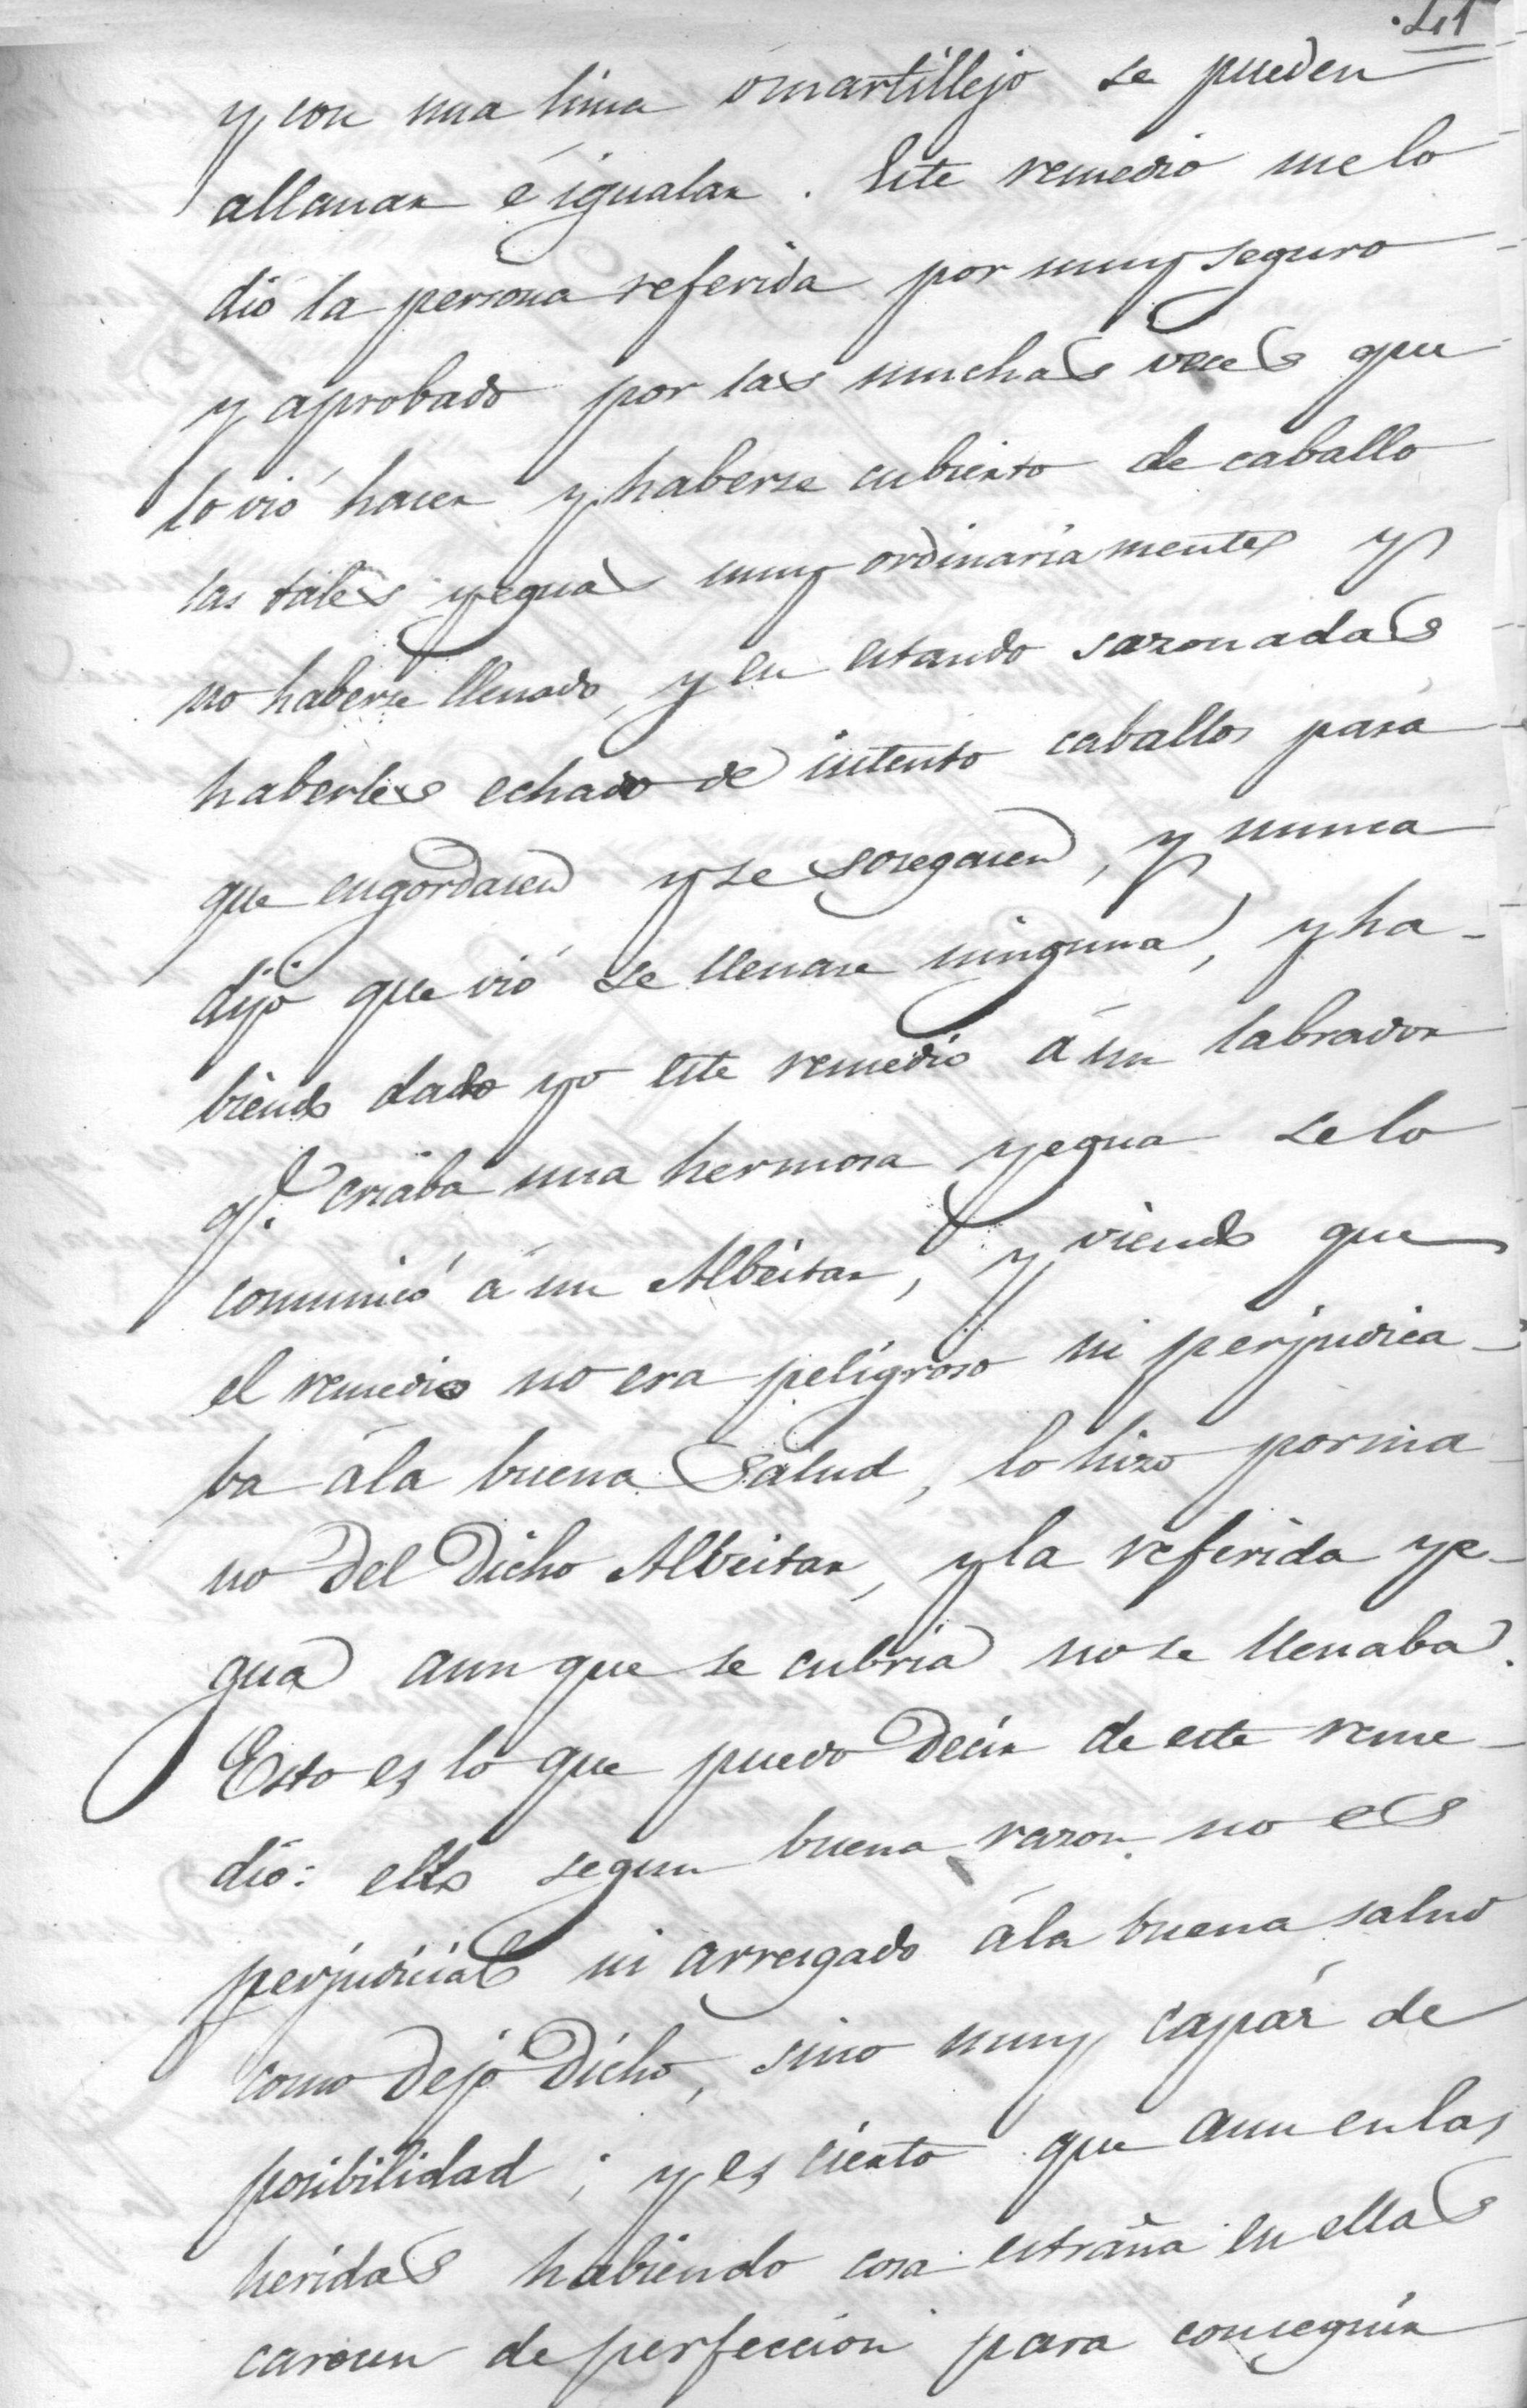 41
y con una lima ó martillejo se pueden
allanar é igualar. Este remedio me lo
dió la persona referida por muy seguro
y aprobado por las muchas veces que
lo vió hacer y haberse cubierto de caballo
las tales yeguas muy ordinariamente y
no haberse llenado, y en estando sazonadas
haberles echado de intento caballos para
que engordasen y se sosegasen, y nunca
dijo que vió se llenase ninguna, y ha-
biendo dado yo este remedio á un labrador
q.e criaba una hermosa yegua se lo
comunicó á un Albeitar, y viendo que
el remedio no era peligroso ni perjudica-
ba á la buena Salud, lo hizo por ma
no del dicho Albeitar, y la referida ye-
gua aun que se cubria no se llenaba.
Esto es lo que puedo decir de este reme-
dio: ello segun buena razon no es
perjudicial ni arresgado á la buena salud
como dejo dicho, sino muy capáz de
posibilidad; y es cierto que aun en las
heridas habiendo cosa estraña en ellas
carecen de perfeccion para conseguir